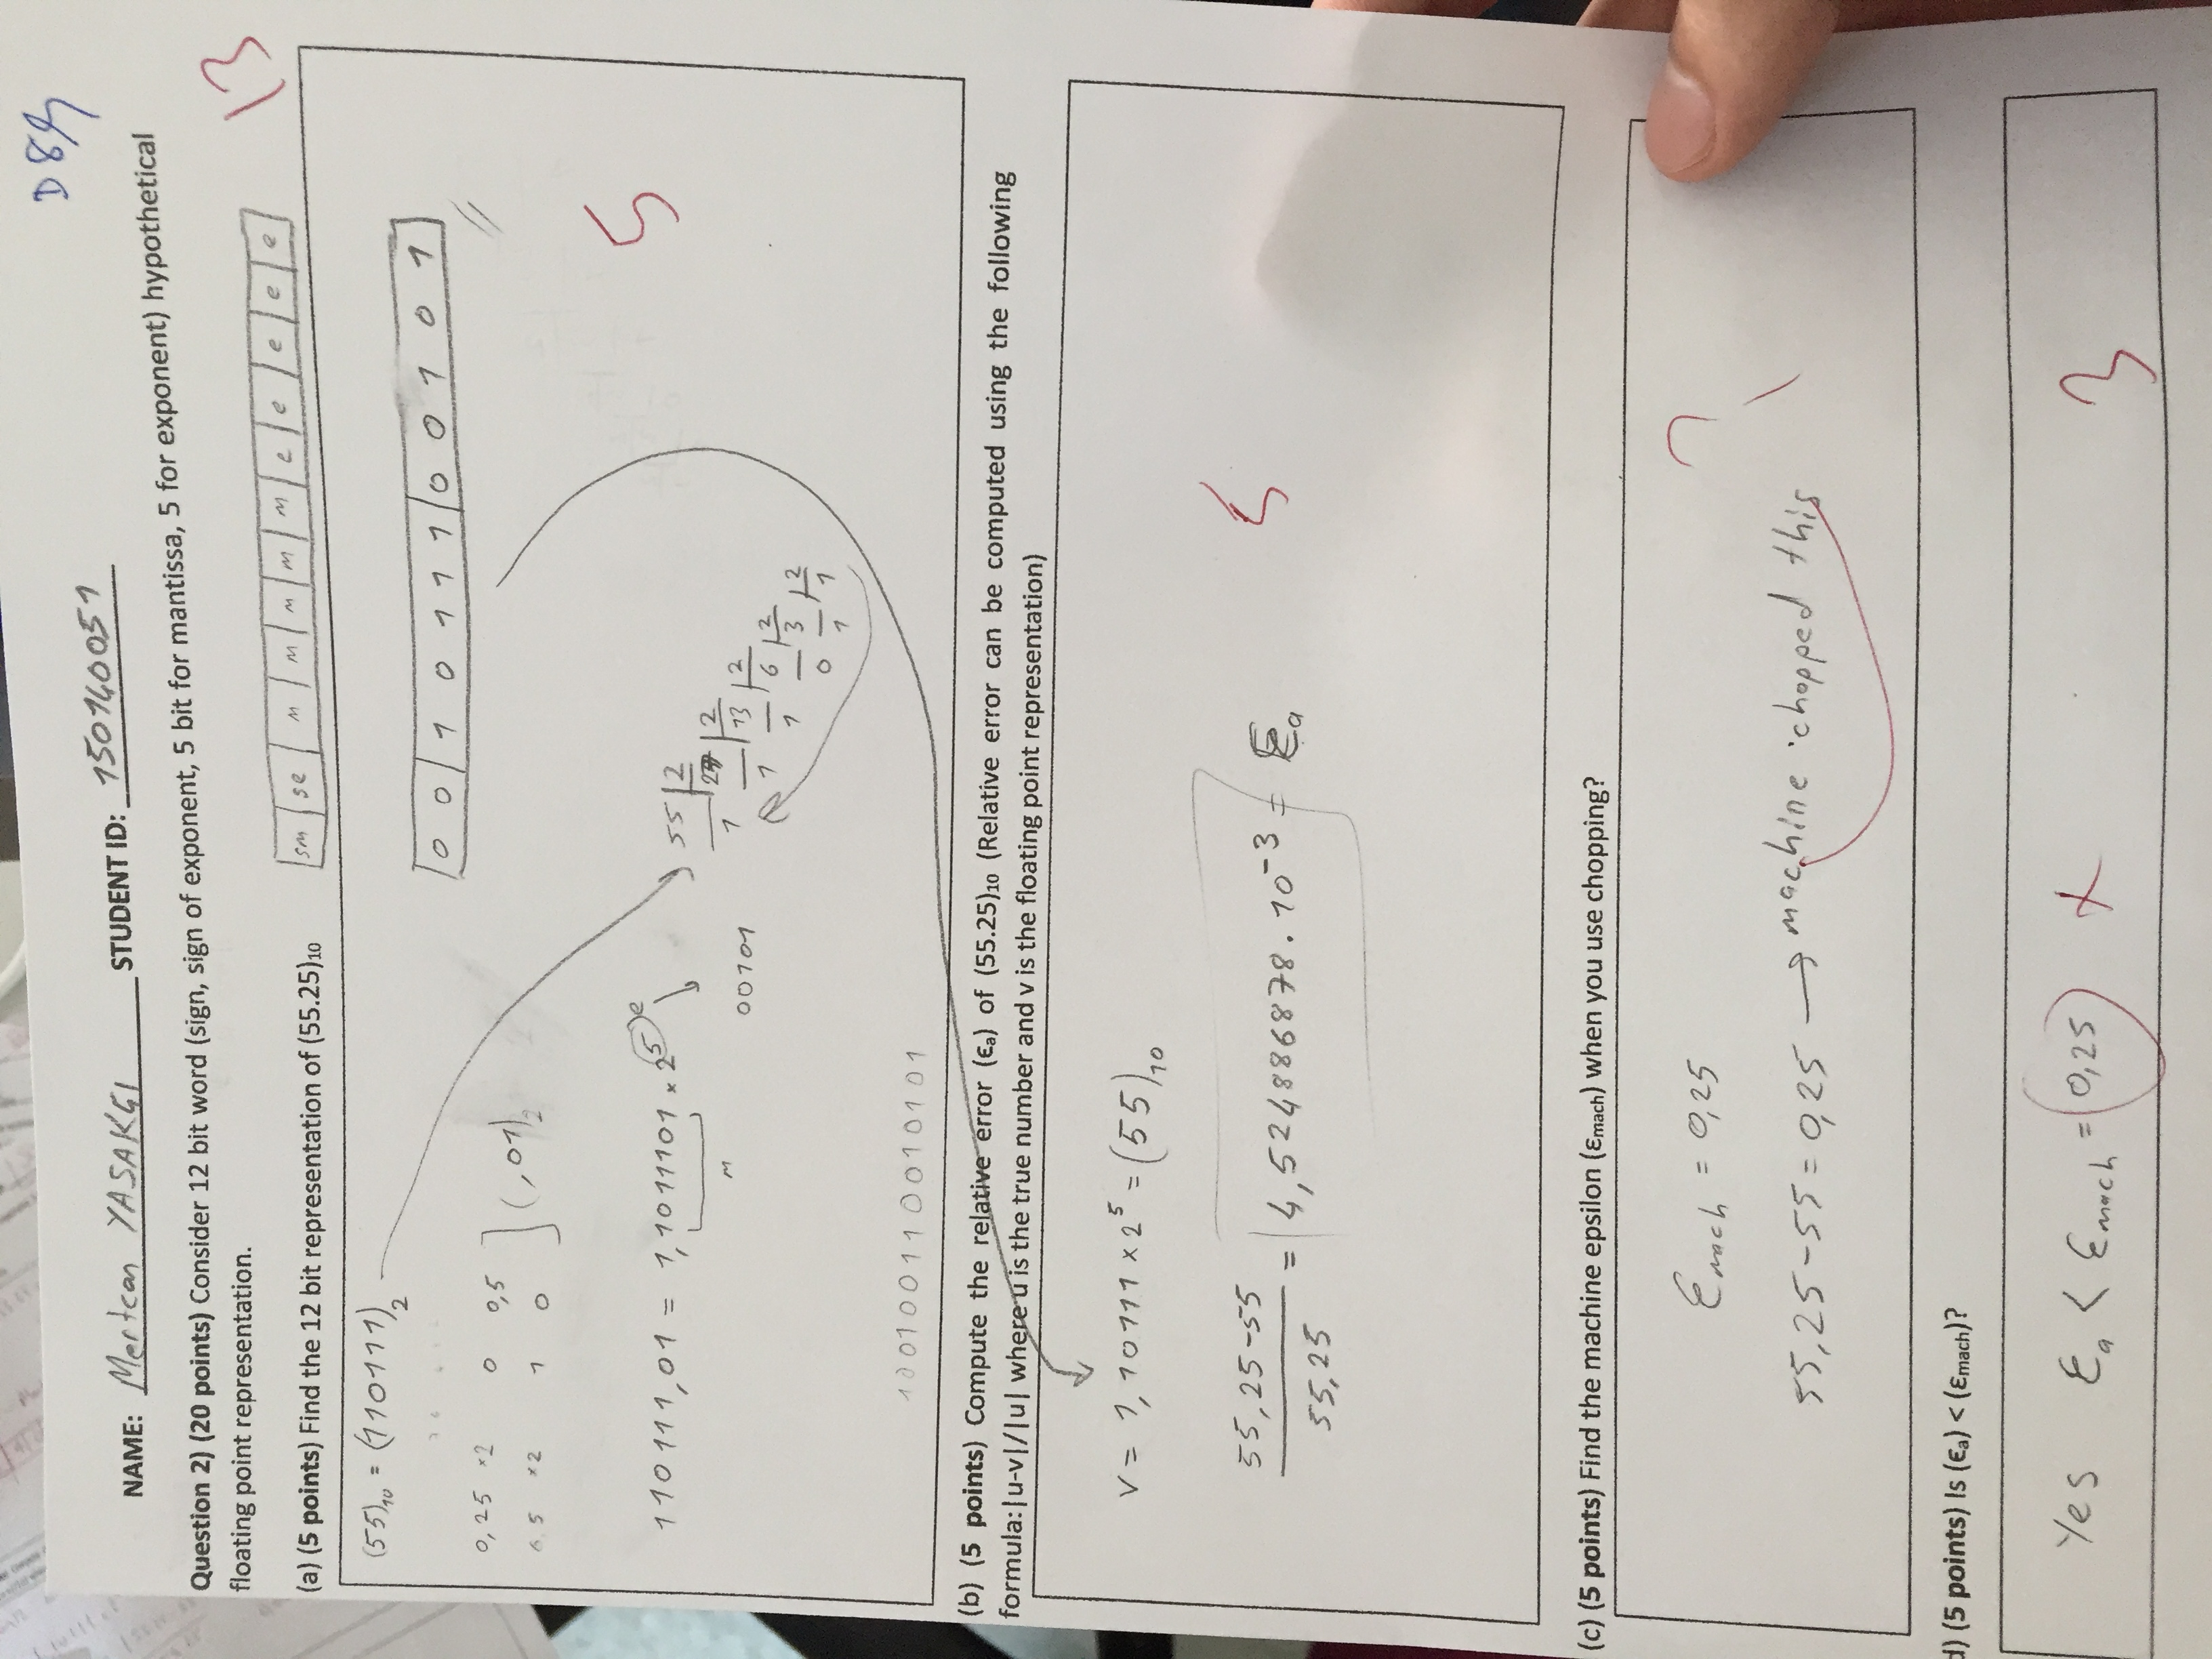 D 84
NAME: Mertcan YASAKÇI STUDENT ID: 150140051
Question 2) (20 points) Consider 12 bit word (sign, sign of exponent, 5 bit for mantissa, 5 for exponent) hypothetical
floating point representation.
13
sm se m m m m m e e e e e
(a) (5 points) Find the 12 bit representation of (55.25)10
(55)10 = (110111)2
0 0 1 0 1 1 1 0 0 1 0 1
0,25 ×2 0 0,5
0.5 ×2 1 0
(,01)2
5
110111,01 = 1,1011101 × 2^5 e
m
00101
55 2
1 27 2
1 13 2
1 6 2
0 3 2
1 1
100100110010101
(b) (5 points) Compute the relative error (ϵa) of (55.25)10 (Relative error can be computed using the following
formula:|u-v|/|u| where u is the true number and v is the floating point representation)
v = 1,10111 × 2^5 = (55)10
55,25-55
= 4,524886878 . 10^-3 = Ea
55,25
5
(c) (5 points) Find the machine epsilon (εmach) when you use chopping?
Emach = 0,25
?
55,25-55 = 0,25 → machine chopped this
d) (5 points) Is (ϵa) < (εmach)?
Yes Ea < Emach = 0,25 x
3